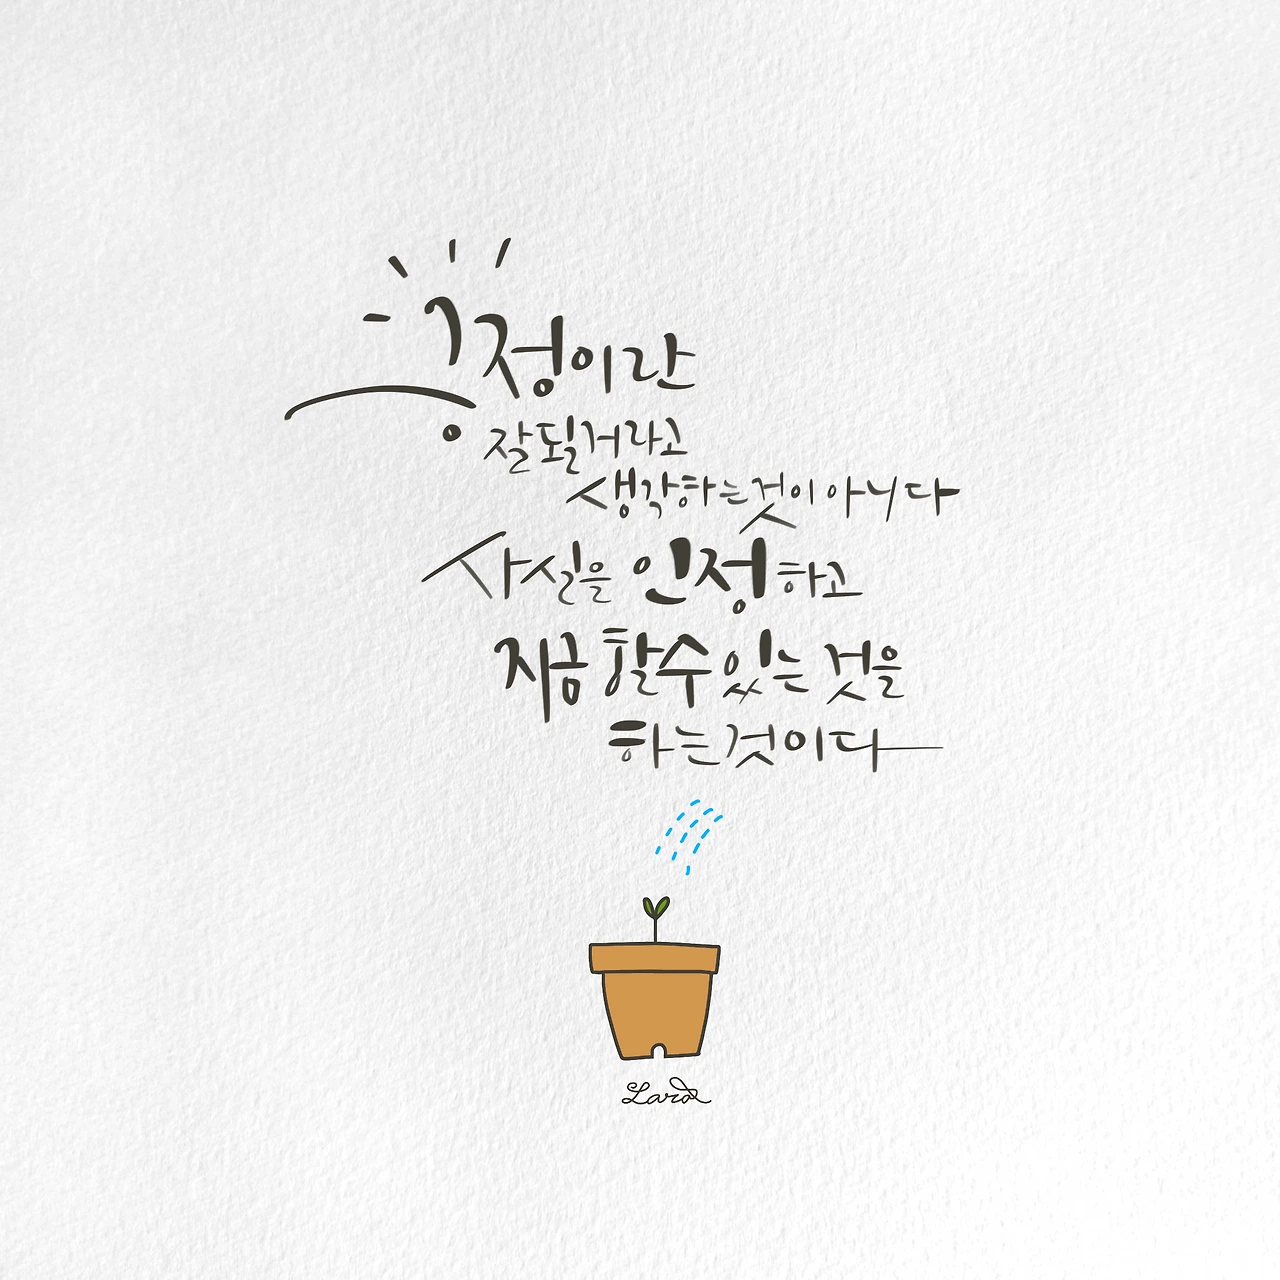 긍정이란
잘될거라고
생각하는것이 아니다
사실을 인정하고
지금 할수있는 것을
하는것이다